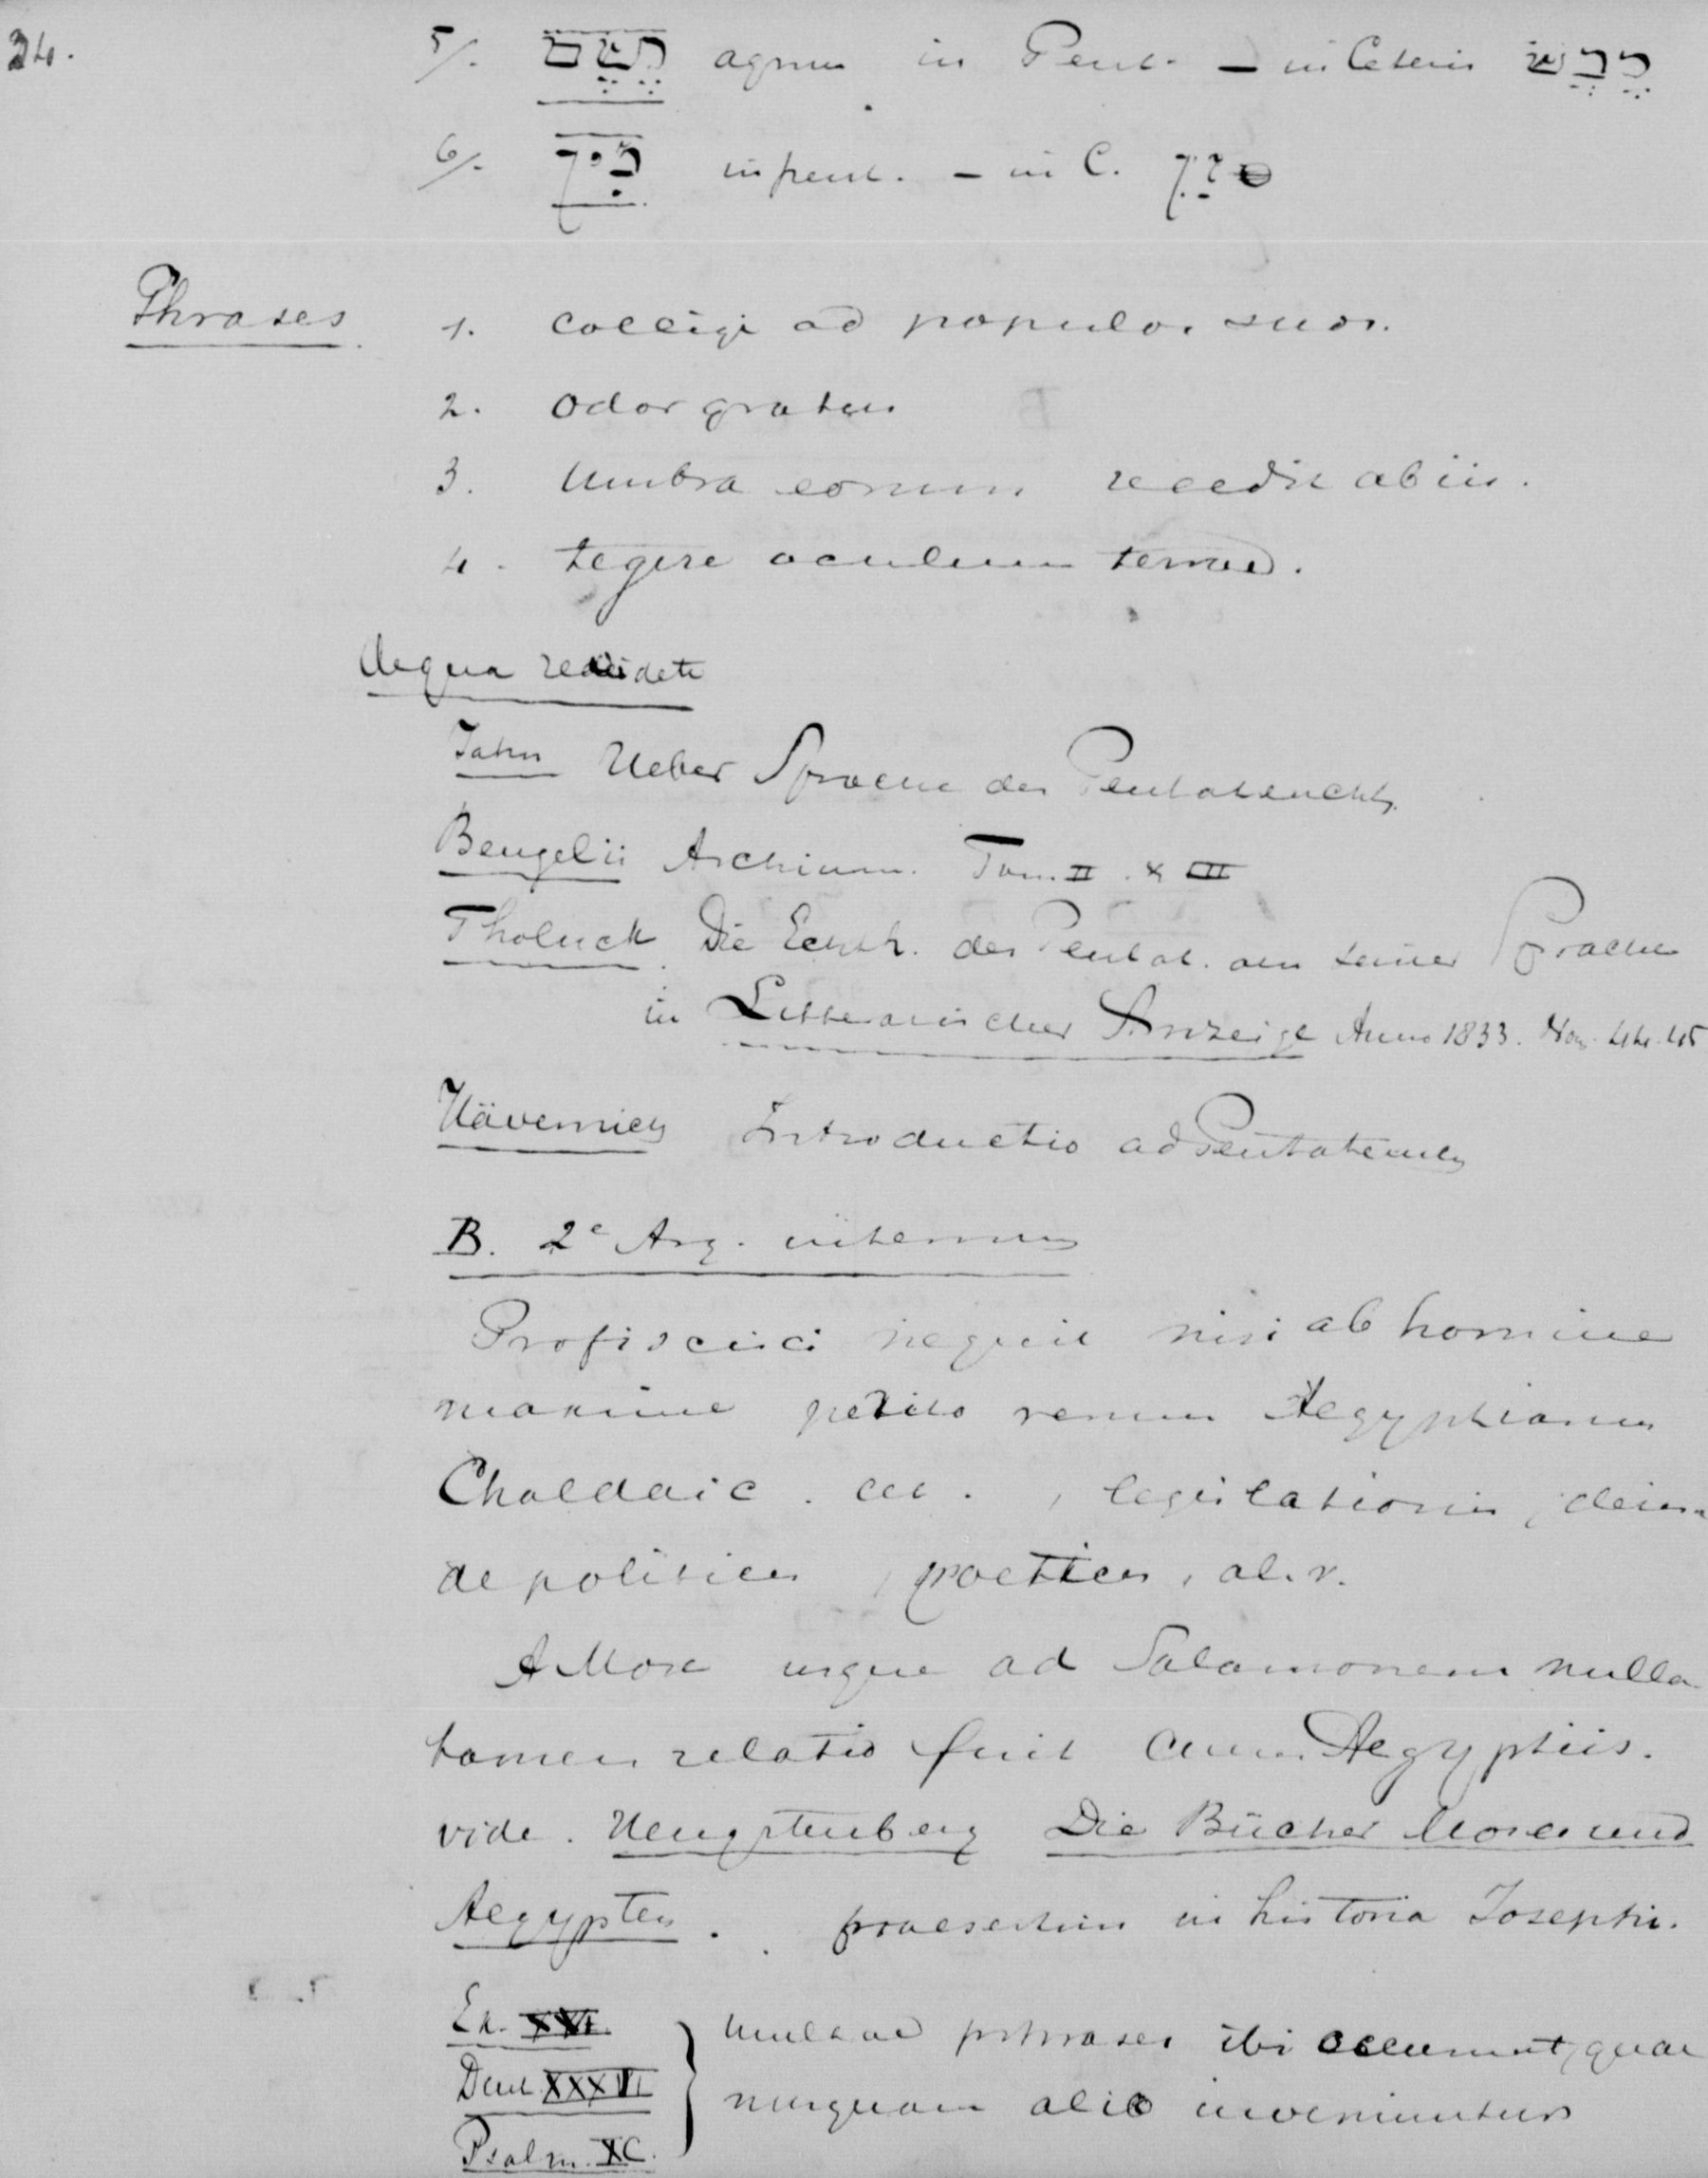 34.
5/. כֶּשֶׂב agnus in Pent. – in Ceteris כֶּבֶשׂ
6/. in pent. – in C.
Phrases 1. colligi ad populos suos.
2. odor gratus
3. Umbra eorum recedit ab iis.
4. tegere oculum terrae.
De qua re videte
Jahn Ueber Sprache des Pentateuchs
Bengelii Archivum. Tom. II & III
Tholuck Die Echth. des Pentat. aus seiner Sprache
in Litterarischer Anzeige Anno 1833. Nos. 44. 45
Hävernick Introductio ad Pentateuch
B. 2e Arg. internum
Profiscisci nequit nisi ab homine
maxime perito rerum Aegyptiarum
Chaldaic. , legislationis, dein
de politices, poetices, al. r.
A Mose usque ad Salamonem nulla
tamen relatio fuit cum Aegyptiis.
vide. Hengstenberg Die Bücher Moses und
Aegypten. praesertim in historia Josephi.
Ex. XVI.
Deut. XXXVI
Psalm. XC.
Multae phrases ibi occurrunt, quae
nusquam alio inveniuntur